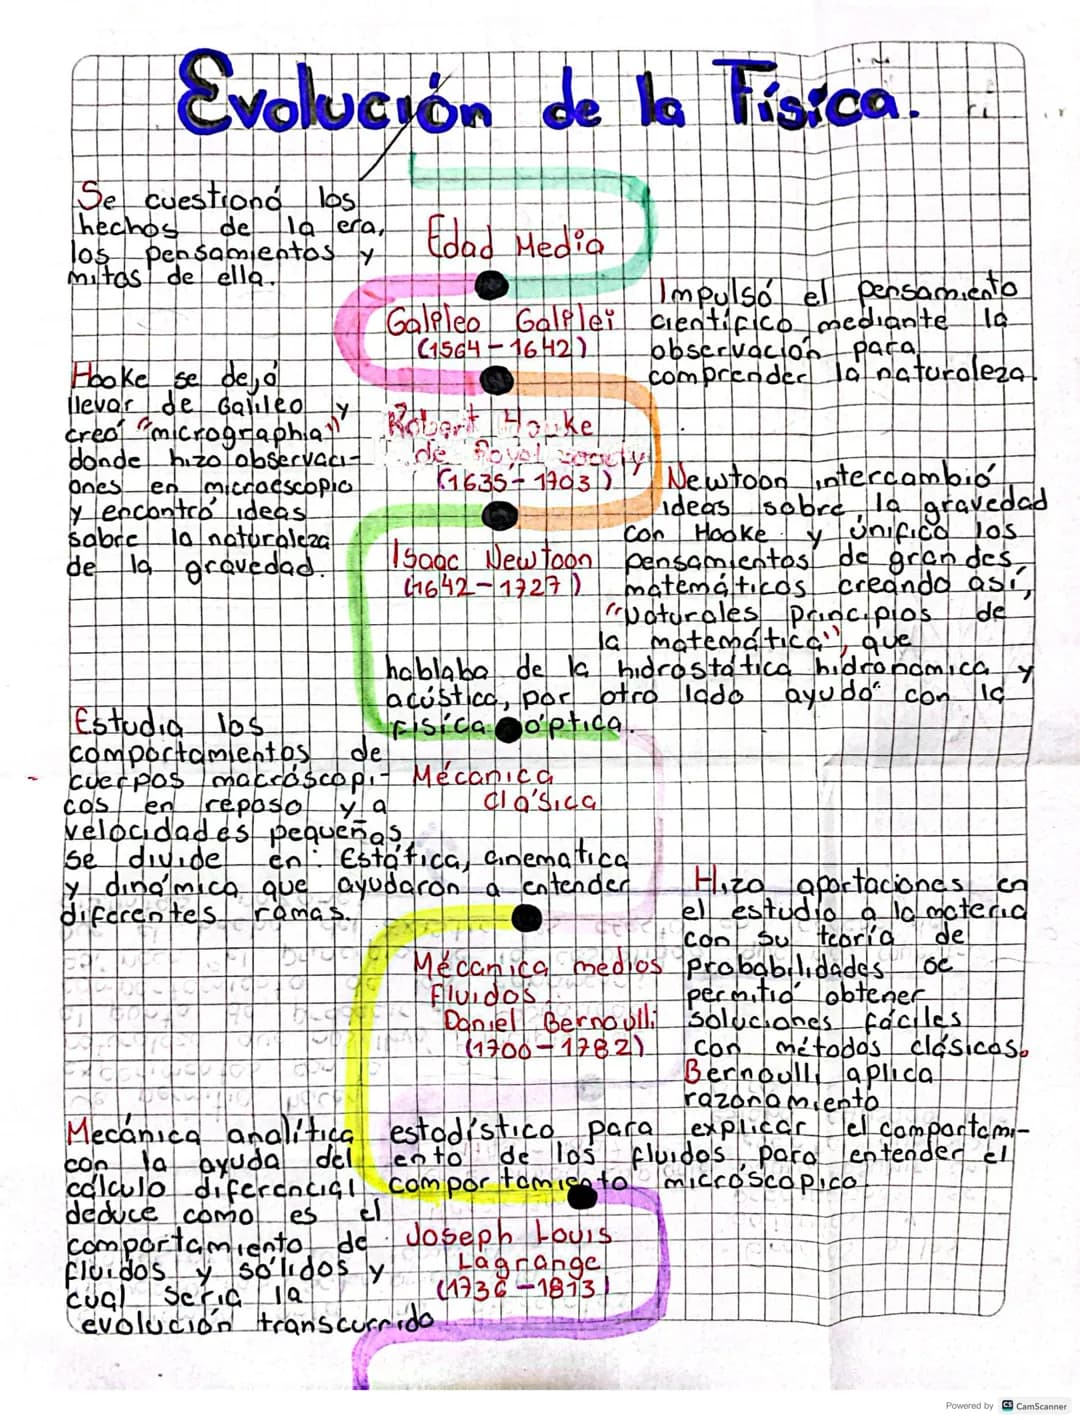 Evolución de la Física.
Se cuestionó los
hechos de la era,
los pensamientos y
mitos de ella.
Edad Media
Galileo Galilei
(1564-1642)
Impulsó el pensamiento
científico mediante la
observación para
comprender la naturaleza.
Hooke se dejó
llevar de Galileo y
creó "micrographia"
donde hizo observaci-
ones en microescopio
y encontró ideas
sobre la naturaleza
de la gravedad.
Robert Hooke
de Royal society
(1635-1703)
Newtoon intercambió
ideas sobre la gravedad
con Hooke y únifico los
pensamientos de grandes
matemáticos creando así,
"Naturales principios de
la matemática", que
hablaba de la hidrostática hidronomica y
acústica, por otro lado ayudó con la
física óptica.
Isaac Newtoon
(1642-1727)
Estudia los
comportamientos de
cuerpos macroscópi-
cos en reposo y a
velocidades pequeñas
se divide en: Estática, cinematica
y dinámica que ayudaron a entender
diferentes ramas.
Mécanica
clásica
Mécanica medios
Fluidos
Daniel Bernoulli
(1700-1782)
Hizo aportaciones en
el estudio a la materia
con su teoría de
probabilidades se
permitió obtener
soluciones fáciles
con métodos clásicos.
Bernoulli aplica
razonamiento
estadístico para explicar el comportami-
ento de los fluidos para entender el
comportamiento microscópico
Mecánica analítica
con la ayuda del
cálculo diferencial
deduce como es el
comportamiento de
fluidos y sólidos y
cual seria la
evolución transcurrido
Joseph Louis
Lagrange
(1736-1813)
Powered by CS CamScanner